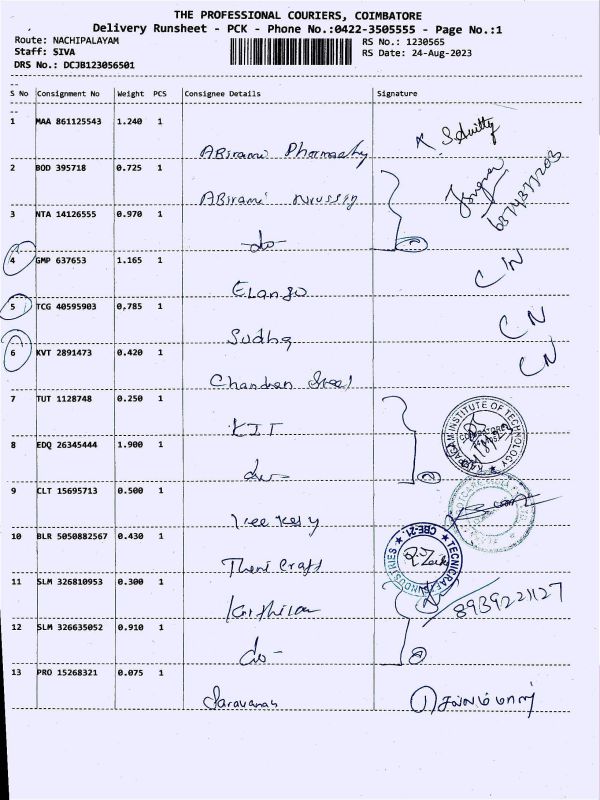 THE PROFESSIONAL COURIERS, COIMBATORE
Delivery Runsheet - PCK - Phone No.:0422-3505555 - Page No.:1
Route: NACHIPALAYAM RS No.: 1230565
Staff: SIVA RS Date: 24-Aug-2023
DRS No.: DCJB123056501
S No Consignment No Weight PCS Consignee Details Signature
1 MAA 861125543 1.240 1
ABirami Pharmacy
2 BOD 395718 0.725 1
ABirami
3 NTA 14126555 0.970 1
-do-
4 GMP 637653 1.165 1 CN
Elango
5 TCG 40595903 0.785 1 CN
Sudha
6 KVT 2891473 0.420 1 CN
Chandran Steel
7 TUT 1128748 0.250 1 KARPAGAM INSTITUTE OF TECHNOLOGY
KIT
8 EDQ 26345444 1.900 1
do-
9 CLT 15695713 0.500 1
10 BLR 5050882567 0.430 1 TECNICRAFT INDUSTRIES CBE-21.
Theni Craft
11 SLM 326810953 0.300 1 8939221127
12 SLM 326635052 0.910 1
do-
13 PRO 15268321 0.075 1
Saravanan